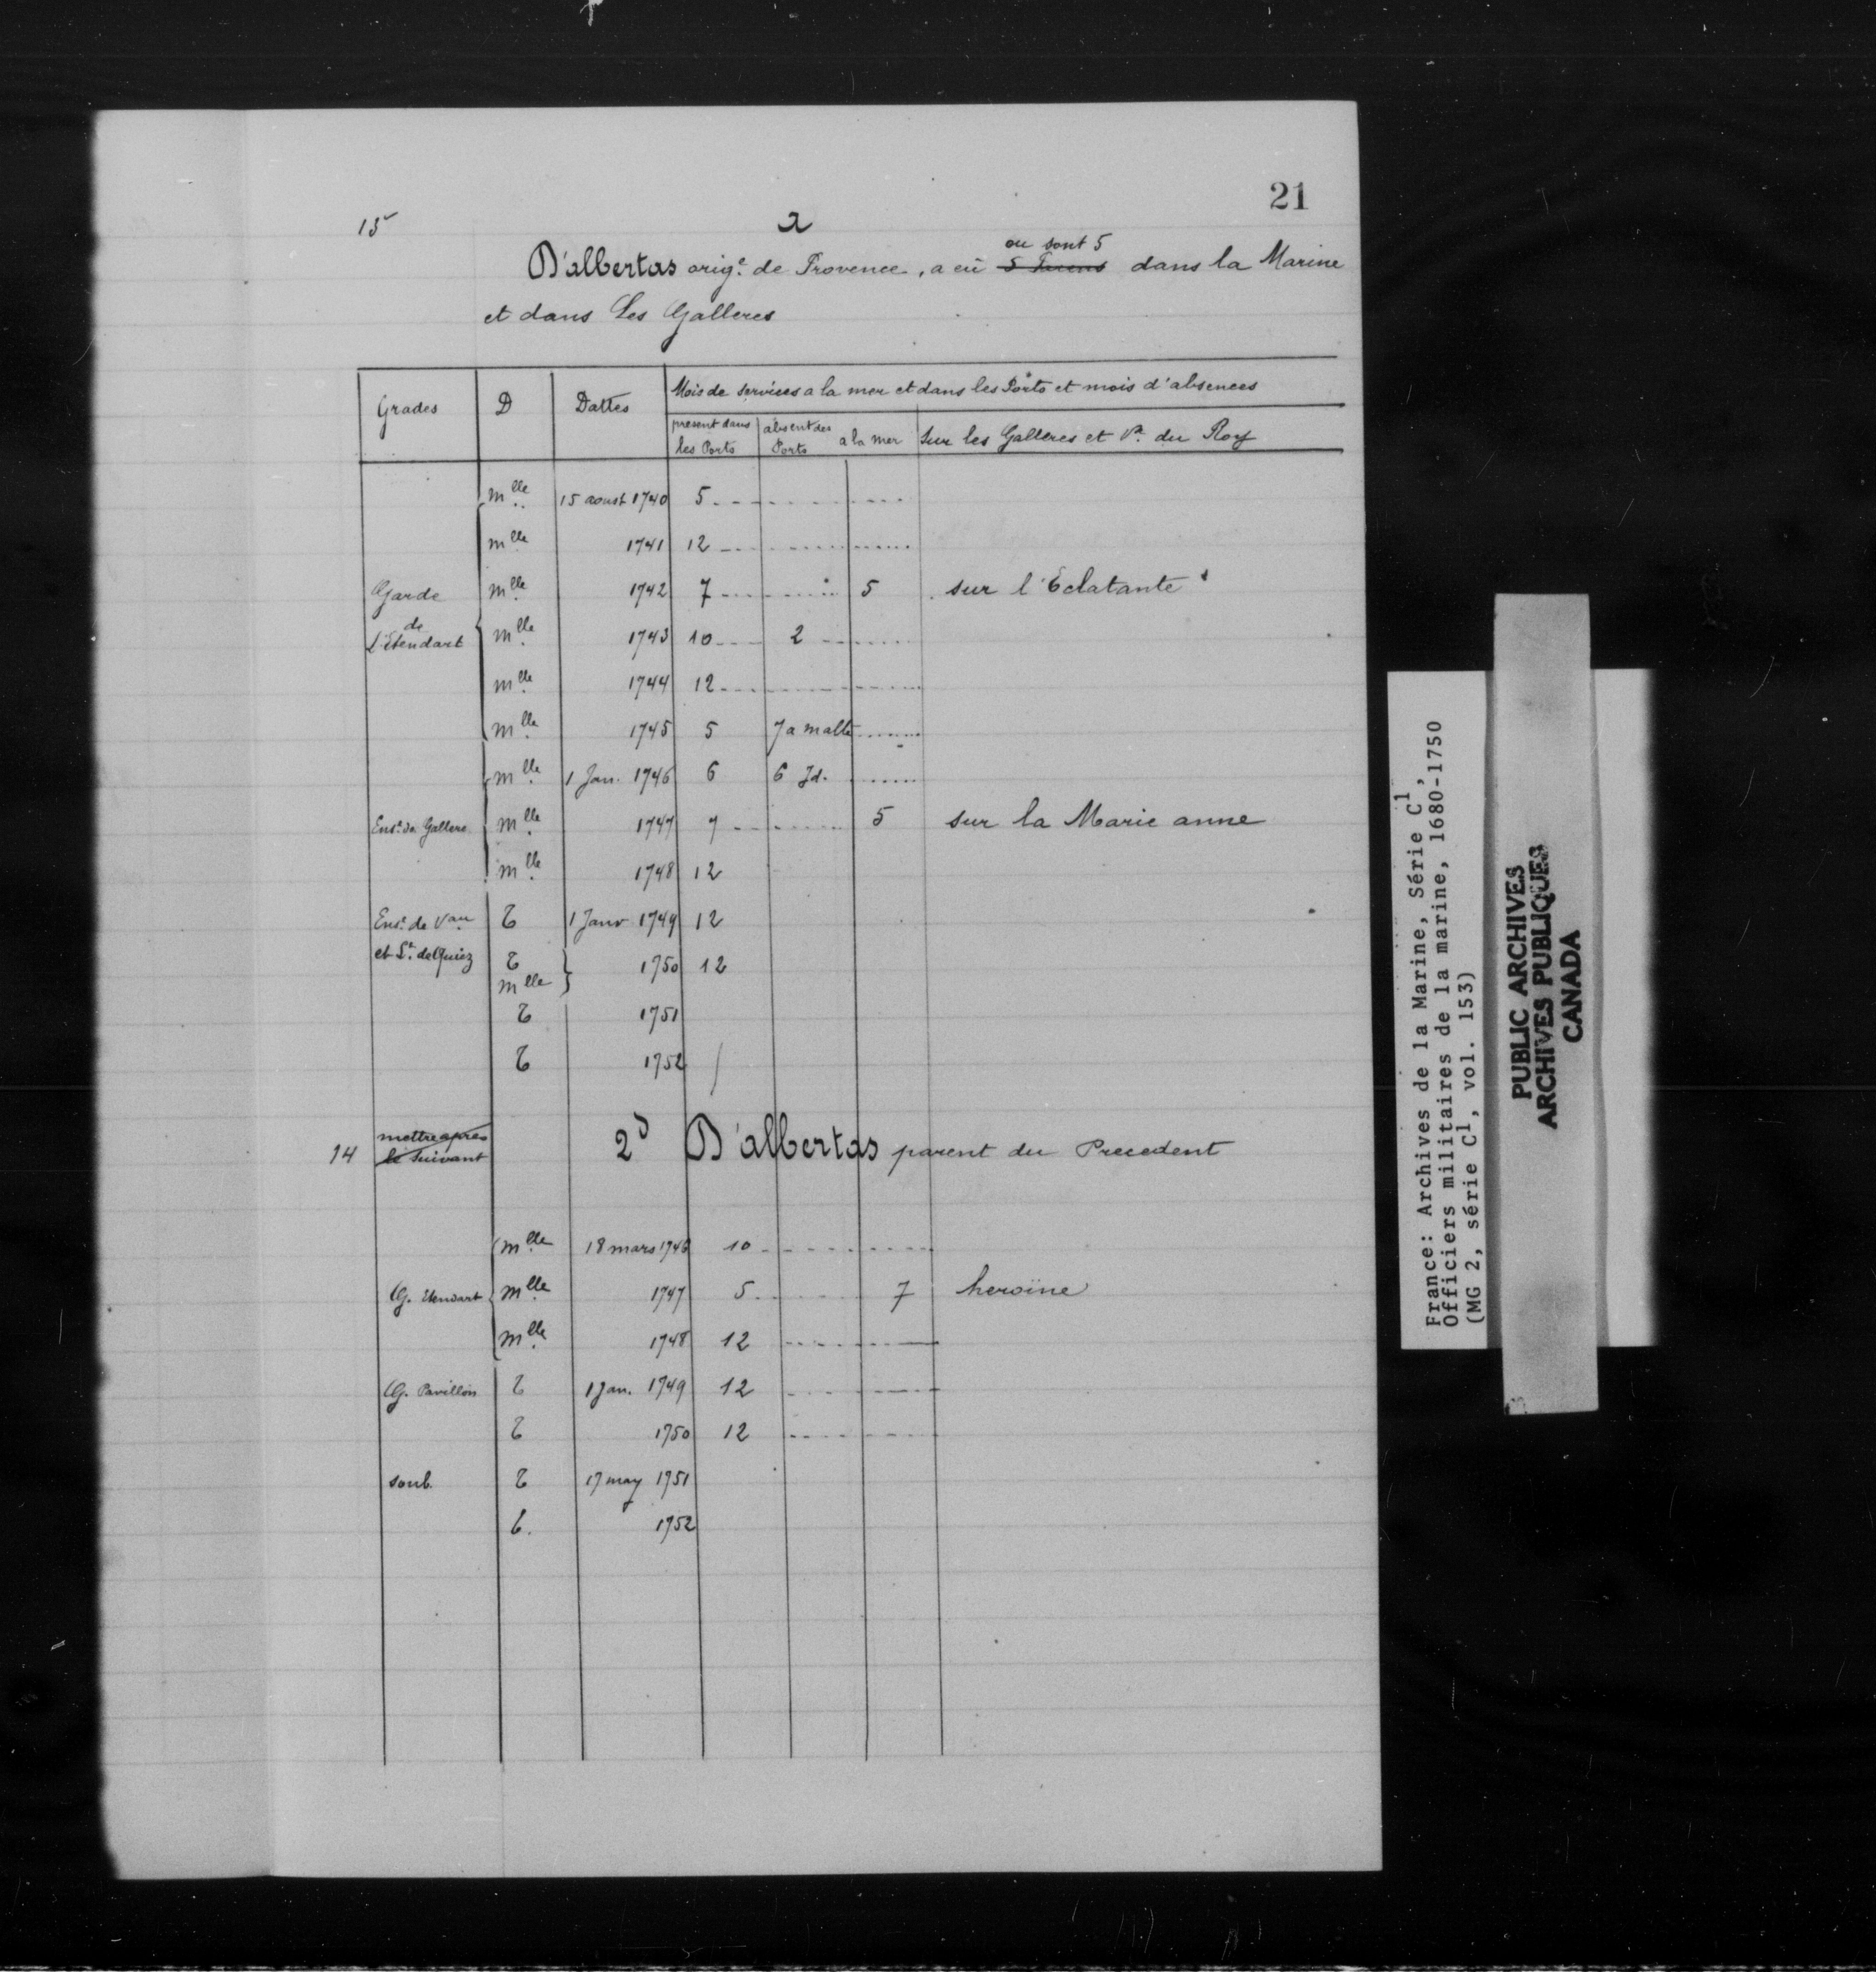 21
15
a
ou sont 5
D'albertas orig.e de Provence, a eü 5 Parens dans la Marine
et dans Les Galleres
Grades D Dattes Mois de services a la mer et dans les Ports et mois d'absences
present dans les Ports absent des Ports a la mer Sur les Galleres et Vx du Roy
mlle 15 aoust 1740 5
mlle 1741 12
Garde mlle 1742 7 5 sur l'Eclatante
de
L'Etendart mlle 1743 10 2
mlle 1744 12
mlle 1745 5 7 a malte
mlle 1 Jan. 1746 6 6 Id.
Ens.e de Gallere mlle 1747 7 5 sur la Marie anne
mlle 1748 12
Ens.e de Vau T 1 Janv 1749 12
et Lt. de T 1750 12
mlle
T 1751
T 1752
14 mettre apres
le Suivant
2d D'albertas parent du Precedent
mlle 18 mars 1746 10
G. Etendart mlle 1747 5 7 heroïne
mlle 1748 12
G. Pavillon T 1 Jan. 1749 12
T 1750 12
soub. T 17 may 1751
T. 1752
France: Archives de la Marine, Série C1,
Officiers militaires de la marine, 1680-1750
(MG 2, série C1, vol. 153)
PUBLIC ARCHIVES
ARCHIVES PUBLIQUES
CANADA